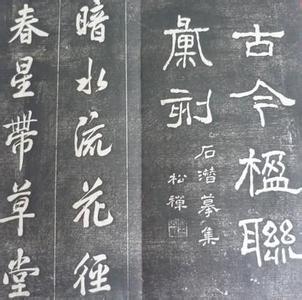 古今楹聯
彙刻
石潛摹集
松禪
暗水流花徑
春星帶草堂